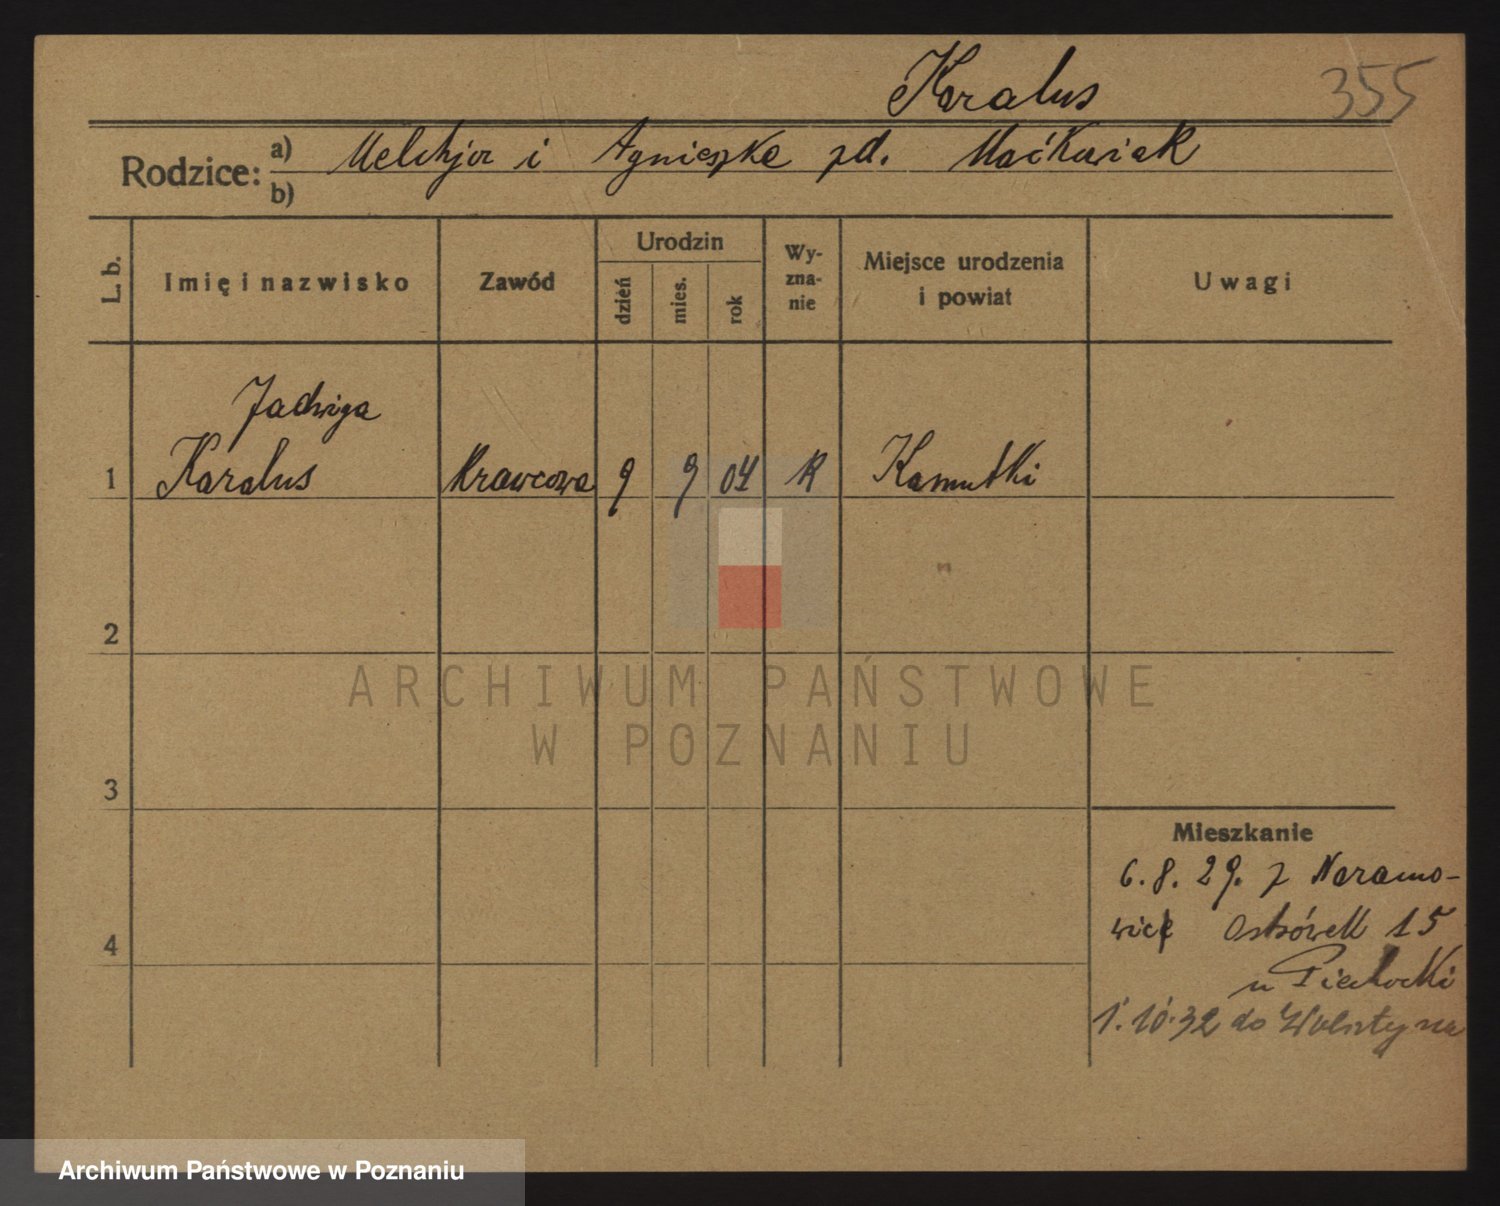 Karalus 355
Rodzice: a) Melchjor i Agnieszka zd. Maćkowiak
b)
L. b. Imię i nazwisko Zawód Urodzin dzień mies. rok Wy-zna-nie Miejsce urodzenia i powiat Uwagi
Jadwiga
1 Karalus Krawcowa 9 9 04 K
2
3
4
Mieszkanie
6.8.29. z Naramo-
wic Ostrówek 15
u Piechocki
1.10.32 do
ARCHIWUM PAŃSTWOWE
W POZNANIU
Archiwum Państwowe w Poznaniu